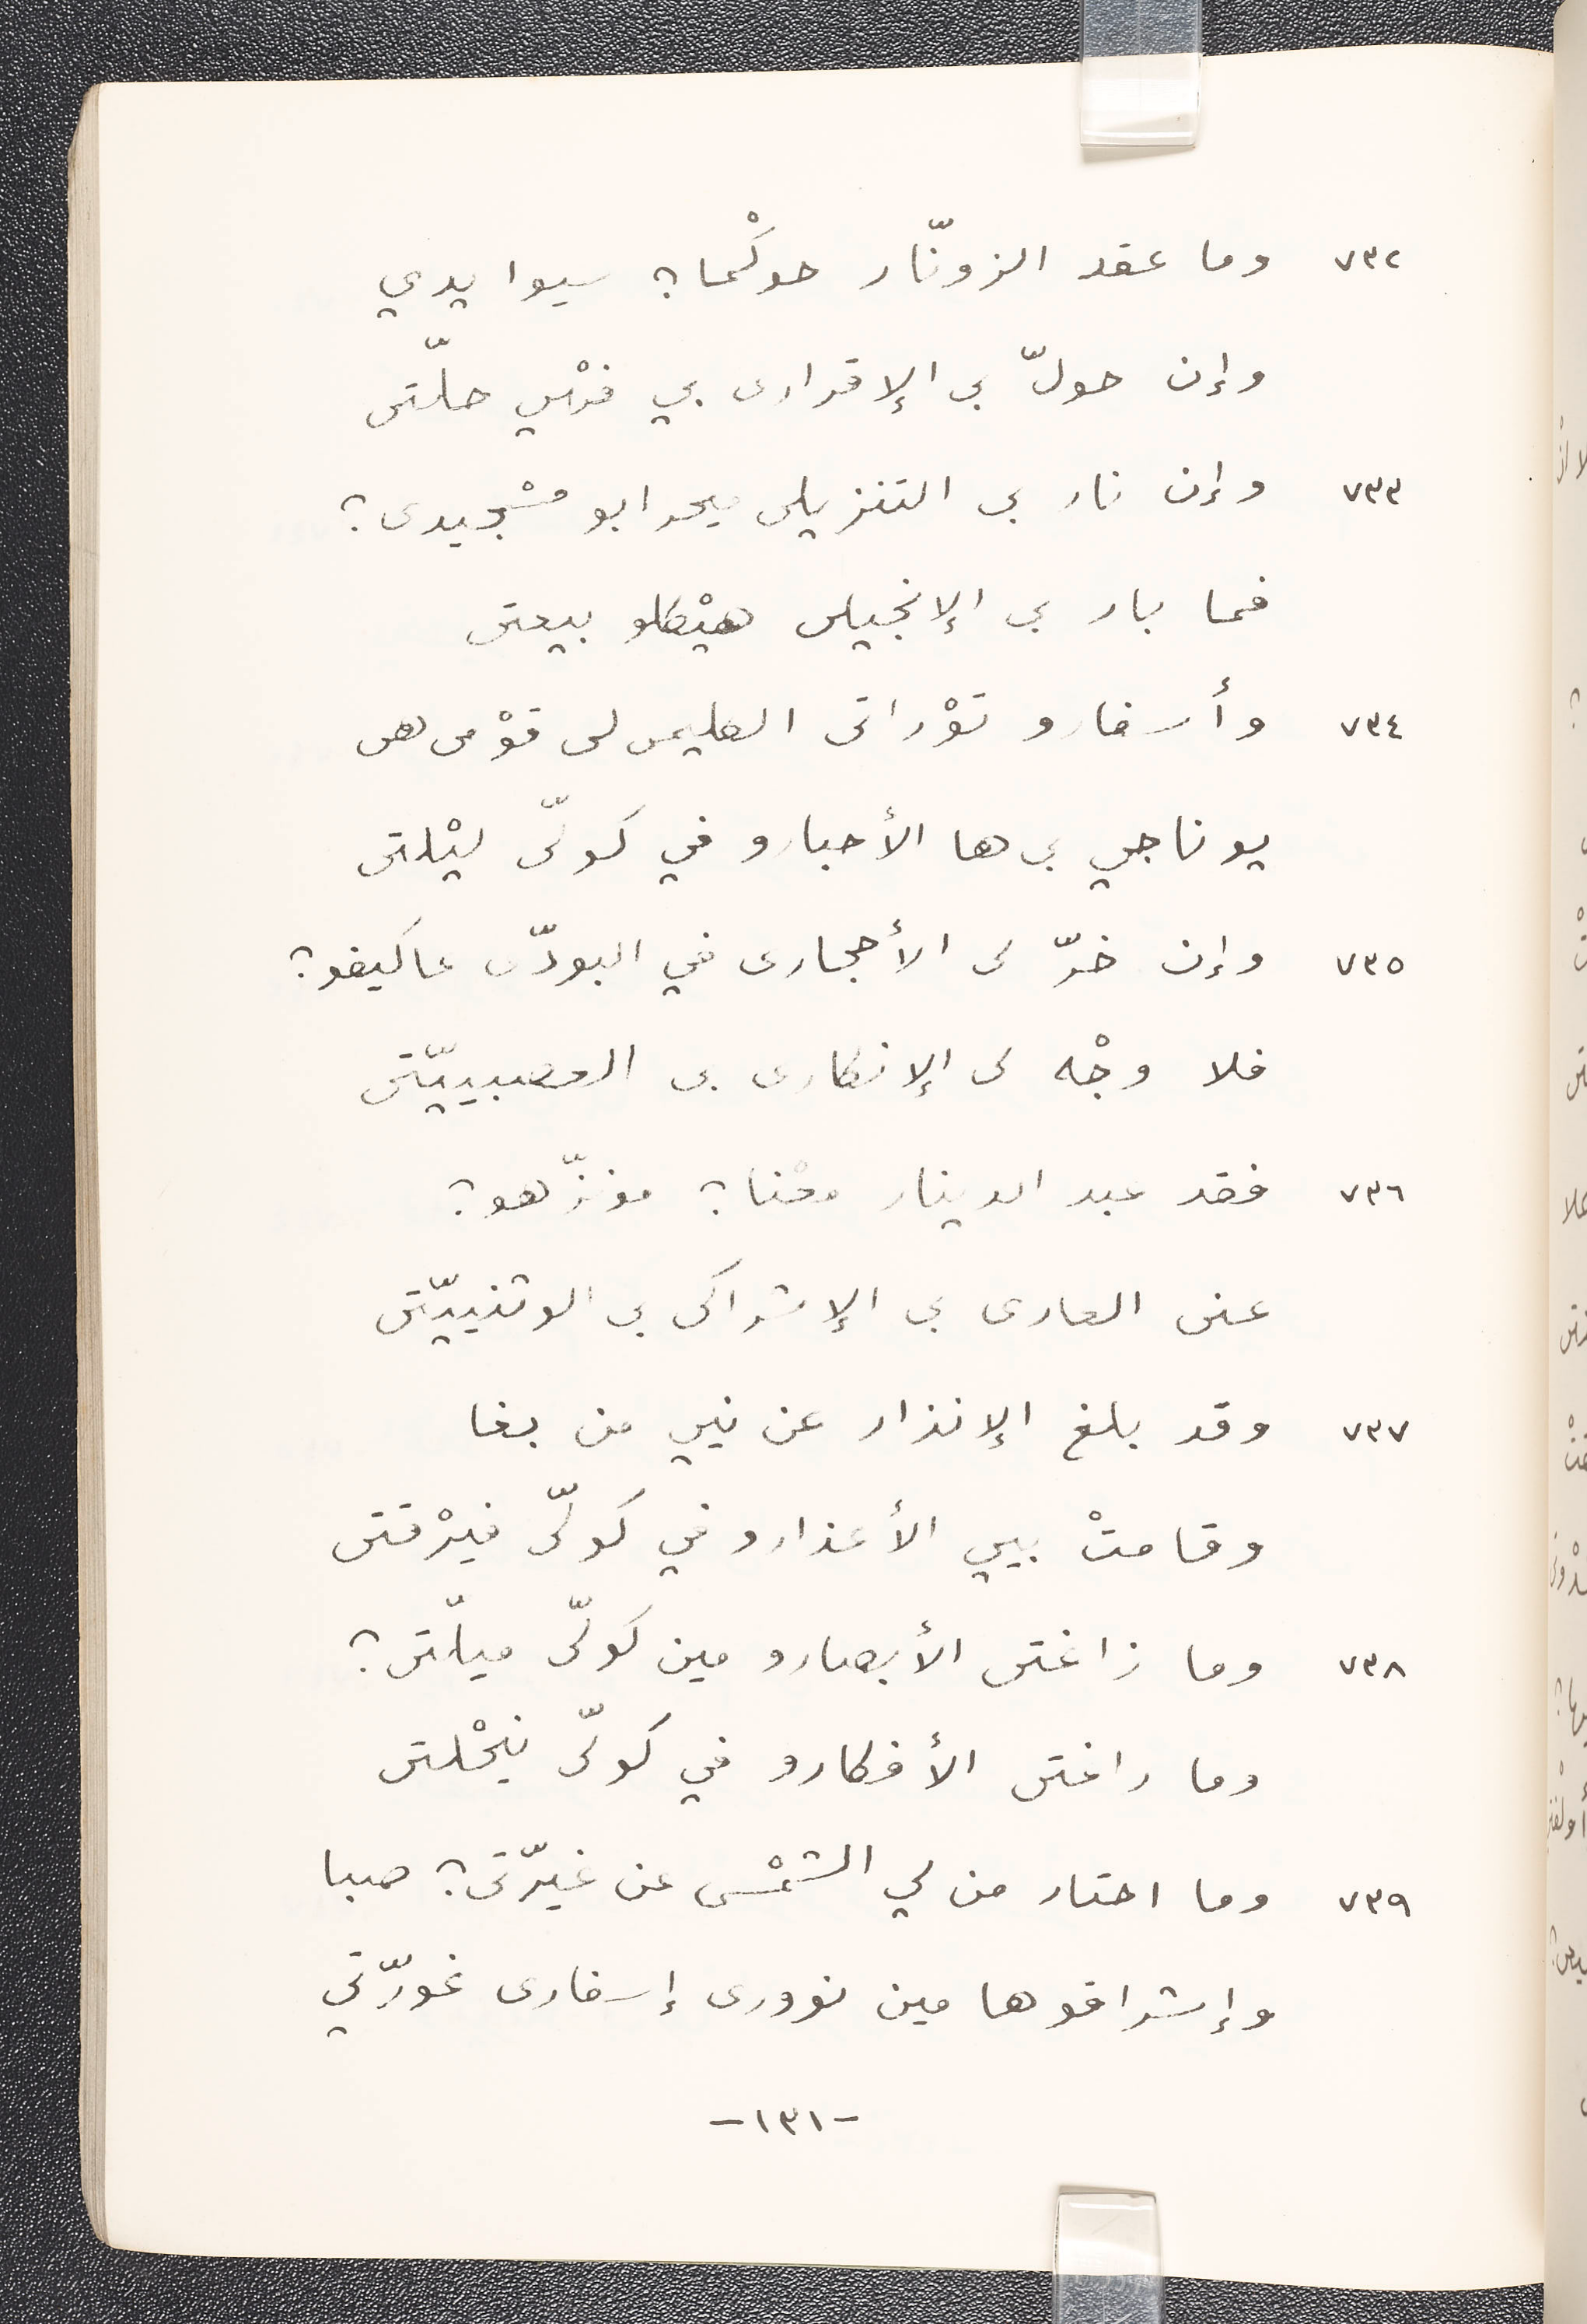 ٧٣٢ وما عقد الزونّار حوكْما؟ سيوا يدي
وإن حولّ بى الإقرارى بي فهْيي حلّتى
٧٣٣ وإن نار بى التنزيلى ميحرابو مسْجيدى؟
فما بار بى الإنجيلى هيْكلو بيعتى
٧٣٤ وأسفارو توْراتى الكليمى لى قوْمى هى
يوناجي بى ها الأحبارو في كولّى ليْلتى
٧٣٥ وإن خرّ لى الأحجارى في البودّى عاكيفو؟
فلا وجْه لى الإنكارى بى العصبييّتى
٧٣٦ فقد عبد الدينار معْنا؟ مونزّهو؟
عنى العارى بى الإشراكى بى الوثنييّتى
٧٣٧ وقد بلغ الإنذار عن نيي من بغا
وقامتْ بيي الأعذارو في كولّى فيرْقتى
٧٣٨ وما زاغتى الأبصارو مين كولّى ميلّتى؟
وما راغتى الأفكارو في كولّى نيحْلتى
٧٣٩ وما احتار من لي الشمْسى عن غيرّتى؟ صبا
وإشراقوها مين نوورى إسفارى غورّتي
-١٣١-